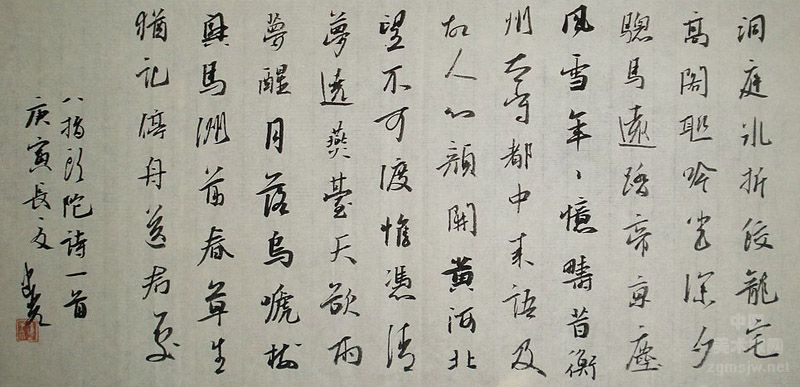 洞庭冰折蛟龍宅
高閣耽吟坐深夕
驄馬遠踏帝京塵
風雪年々憶疇昔衡
州太守都中來語及
故人心顏開黃河北
望不可渡惟憑清
夢遶燕臺天欲雨
夢醒月落烏啼樹
興馬洲前春草生
猶記停舟送君處
八指頭陀詩一首
庚寅長夏
中国
美术网
zgmsjw.net